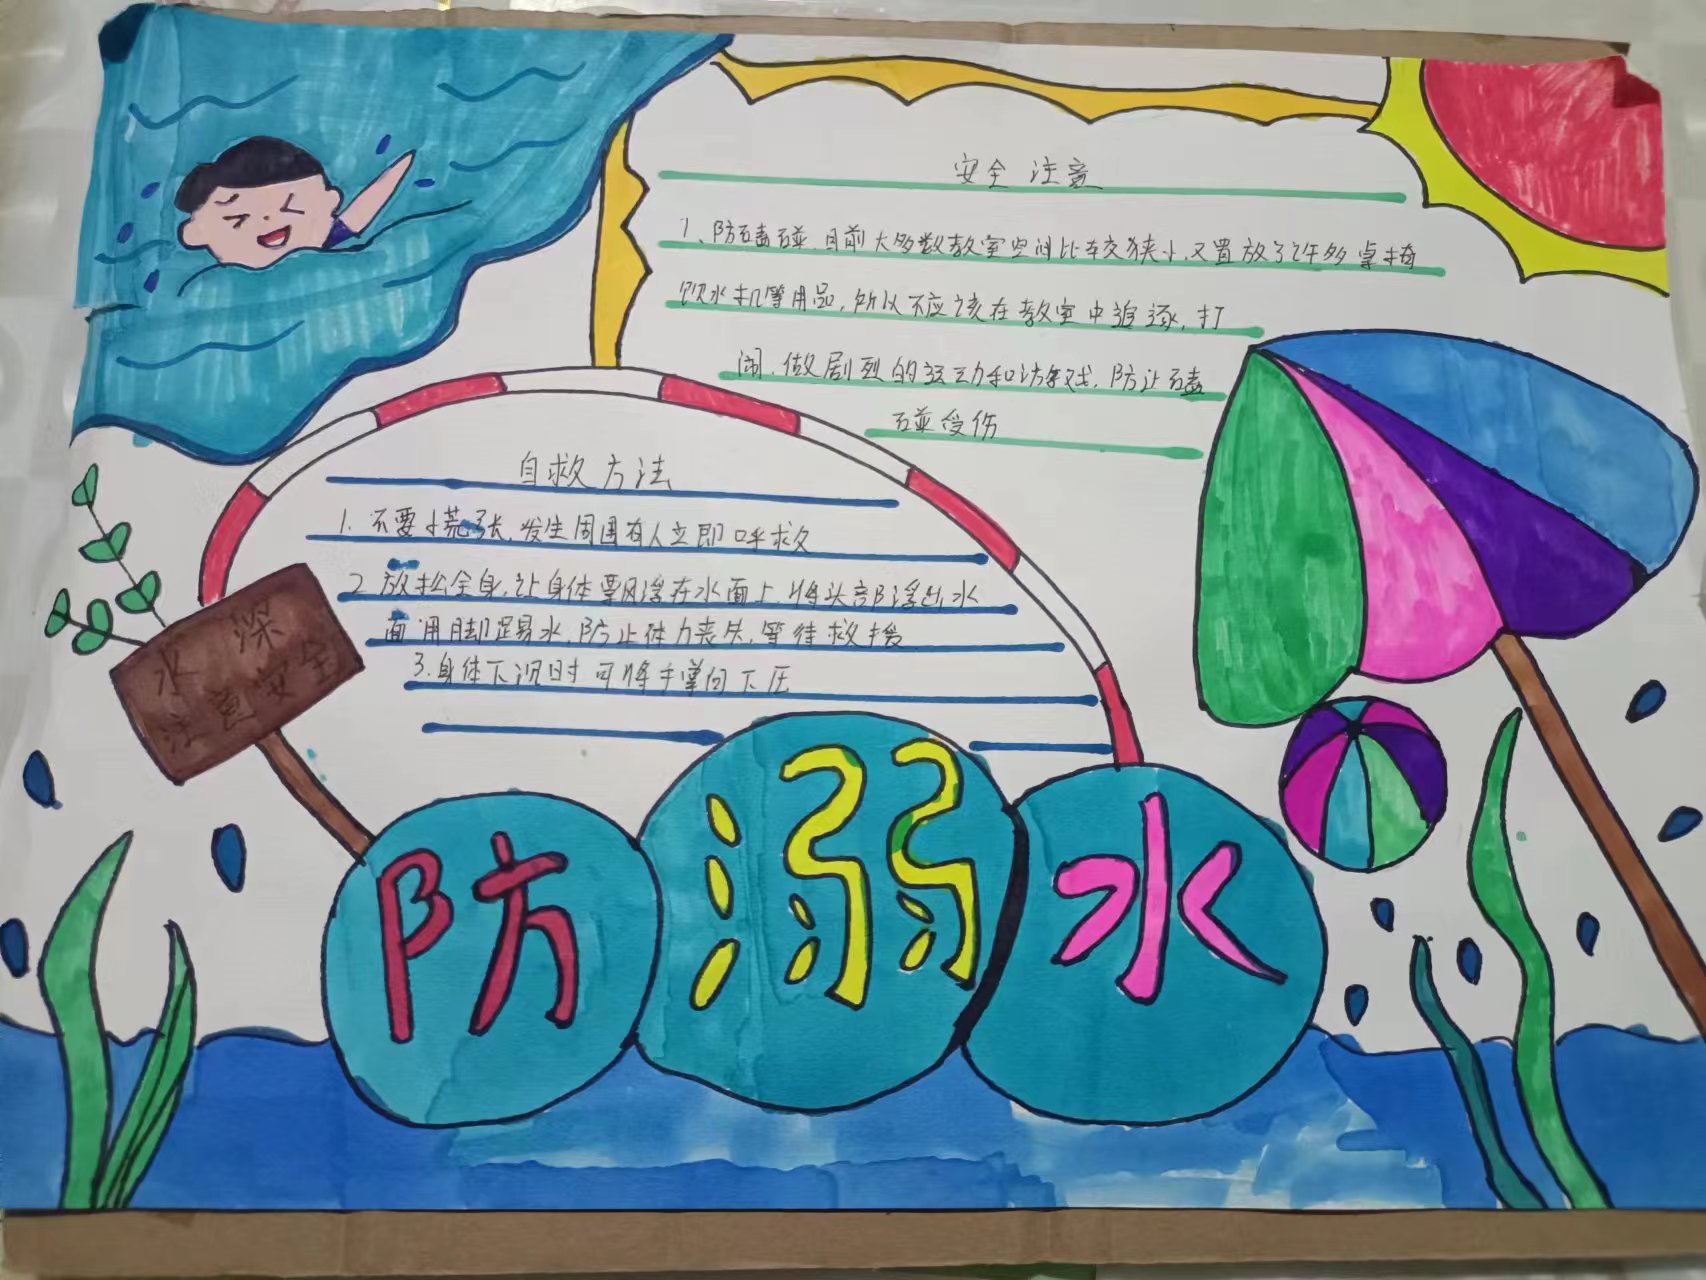 安全注意
1、防磕碰.目前大多数教室空间比较狭小,又置放了许多桌椅
饮水机等用品,所以不应该在教室中追逐,打
闹,做剧烈的运动和游戏,防止磕
碰受伤
自救方法
1.不要慌张,发生周围有人立即呼救
2.放松全身,让身体飘浮在水面上,将头部浮出水
面用脚踢水,防止体力丧失,等待救援
3.身体下沉时可将手掌向下压
水深
注意安全
防溺水